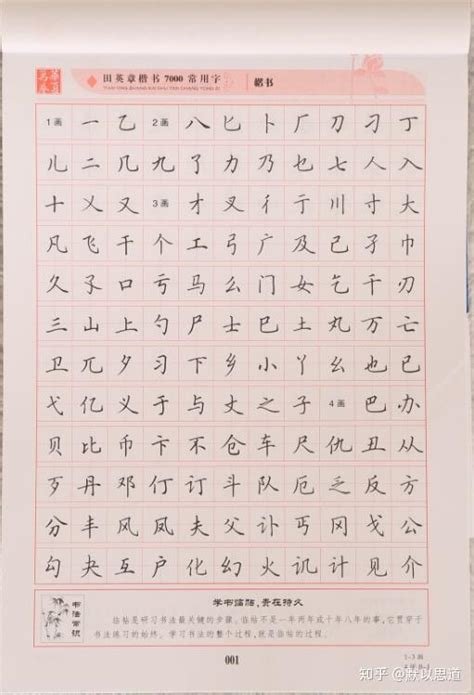 田英章楷书7000常用字
楷书
1画 一 乙 2画 八 匕 卜 厂 刀 刁 丁
儿 二 几 九 了 力 乃 七 七 人 入
十 乂 又 3画 才 叉 彳 亍 川 寸 大
凡 飞 干 个 工 弓 广 及 己 孑 巾
久 孓 口 亏 马 么 门 女 乞 千 刃
三 山 上 勺 尸 士 巳 土 丸 万 亡
卫 兀 夕 习 下 乡 小 丫 幺 也 已
弋 亿 义 于 与 丈 之 子 4画 巴 办
贝 比 币 卞 不 仓 车 尺 仇 丑 从
歹 丹 邓 仃 订 斗 队 厄 乏 反 方
分 丰 风 凤 夫 父 讣 丐 冈 戈 公
勾 夬 互 户 化 幻 火 讥 计 见 介
书法常识
学书临脂,贵在持久
临帖是研习书法最关键的步骤,临帖不是一年两年或十年八年的事,它贯穿于
书法练习的始终。学习书法的整个过程,就是临帖的过程。
001
1-3画
知乎 @默以思道